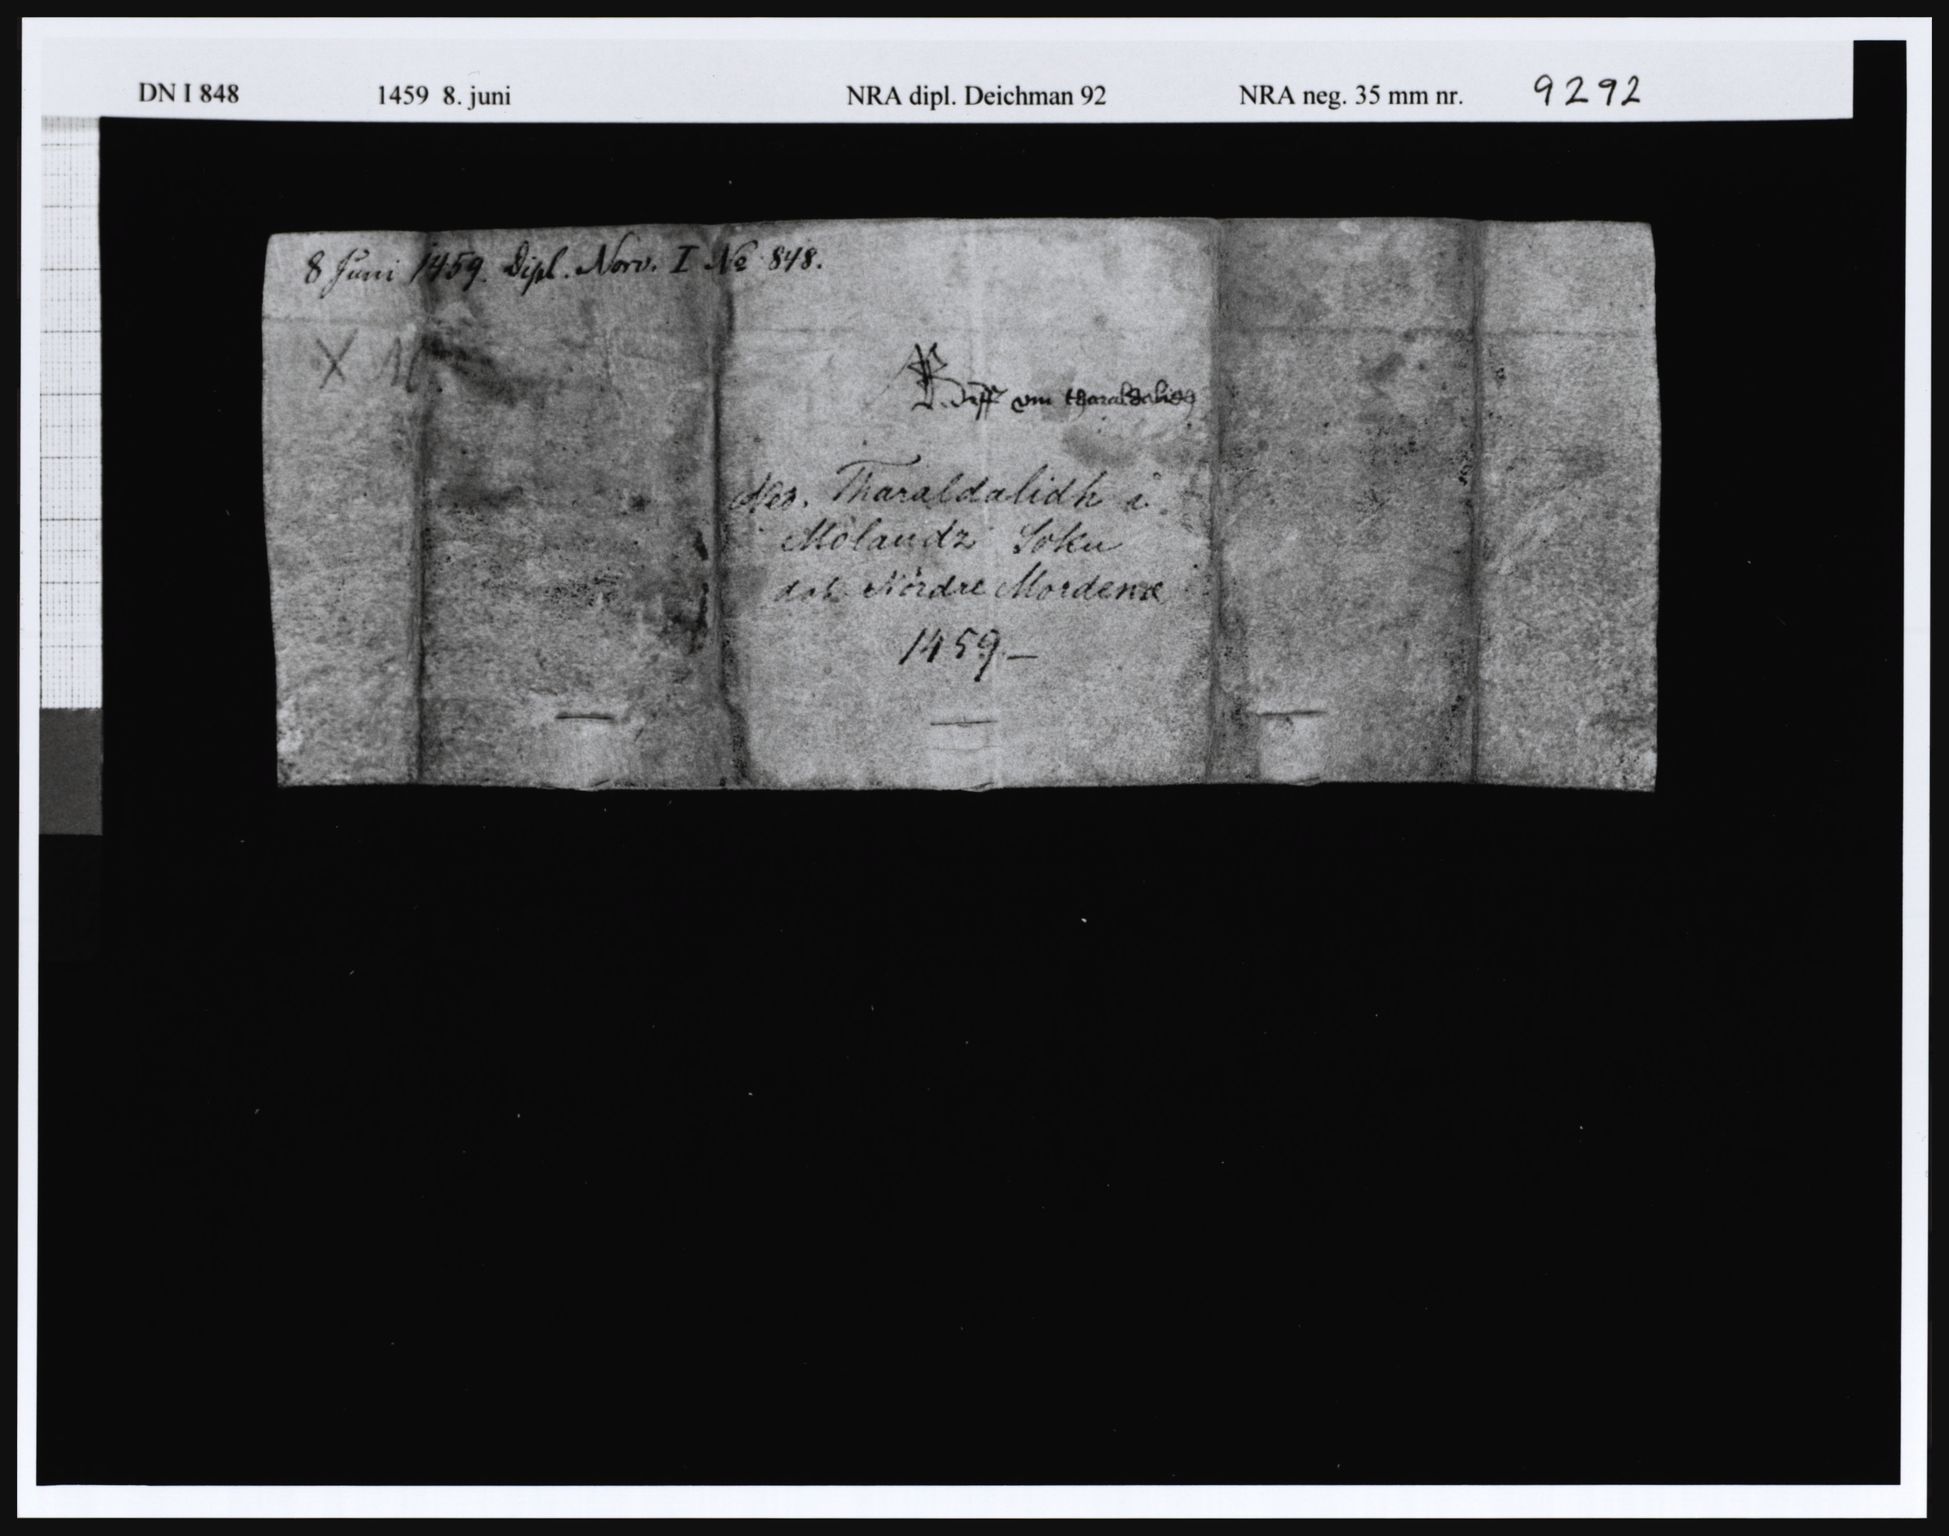 DN I 848 1459 8. juni NRA dipl. Deichman 92 NRA neg. 35 mm nr. 9292
8 Juni 1459. Dipl. Norv. I No 848.
X M
Breff om tharaldalidh
Tharaldalidh i
Mölandz Sokn
Nordre Mordenæ
1459.—